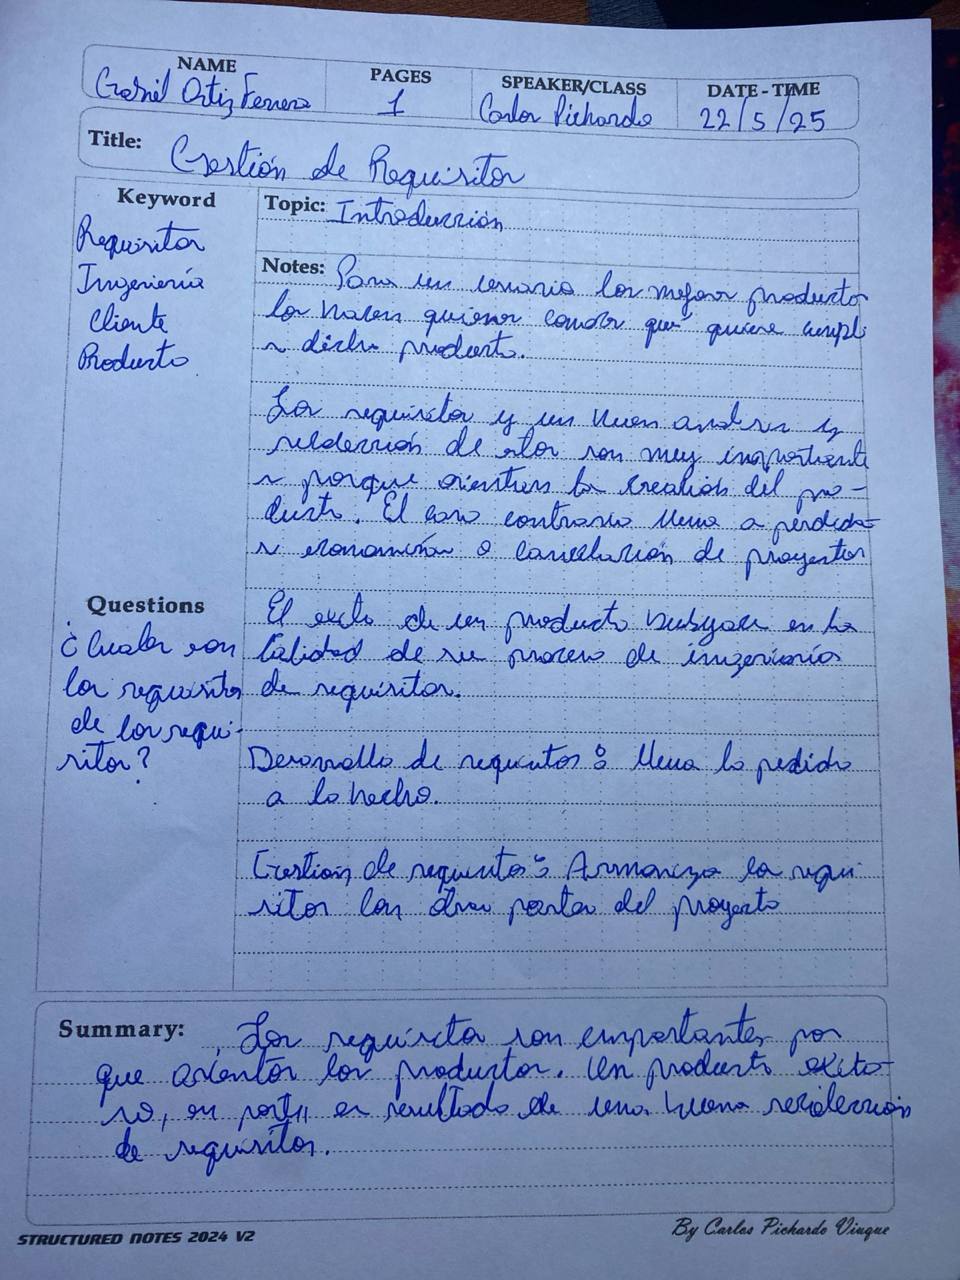 NAME
Gabriel Ortiz Ferrera
PAGES
1
SPEAKER/CLASS
Carlos Pichardo
DATE - TIME
22/5/25
Title: Gestión de Requisitos
Keyword
Requisitos
Ingeniería
Cliente
Producto
Topic: Introducción
Notes: Para un usuario los mejores productos
los hacen quienes conoce que quiere cumpl
a dicho producto.
Los requisitos y un buen análisis y
de ellos son muy importante
s porque orientan la creación del pro-
ducto. El caso contrario lleva a perdida
s económicas o cancelación de proyectos
El éxito de un producto subyace en la
calidad de su proceso de ingeniería
de requisitos.
Desarrollo de requisitos: lleva lo pedido
a lo hecho.
Gestión de requisitos: Armoniza los requi
sitos con otras partes del proyecto
Questions
¿Cuales son
los requisitos
de los requi-
sitos?
Summary: Los requisitos son importantes por
que orientan los productos. Un producto exito-
so, en parte, es resultado de una buena
de requisitos.
STRUCTURED NOTES 2024 V2
By Carlos Pichardo Viuque